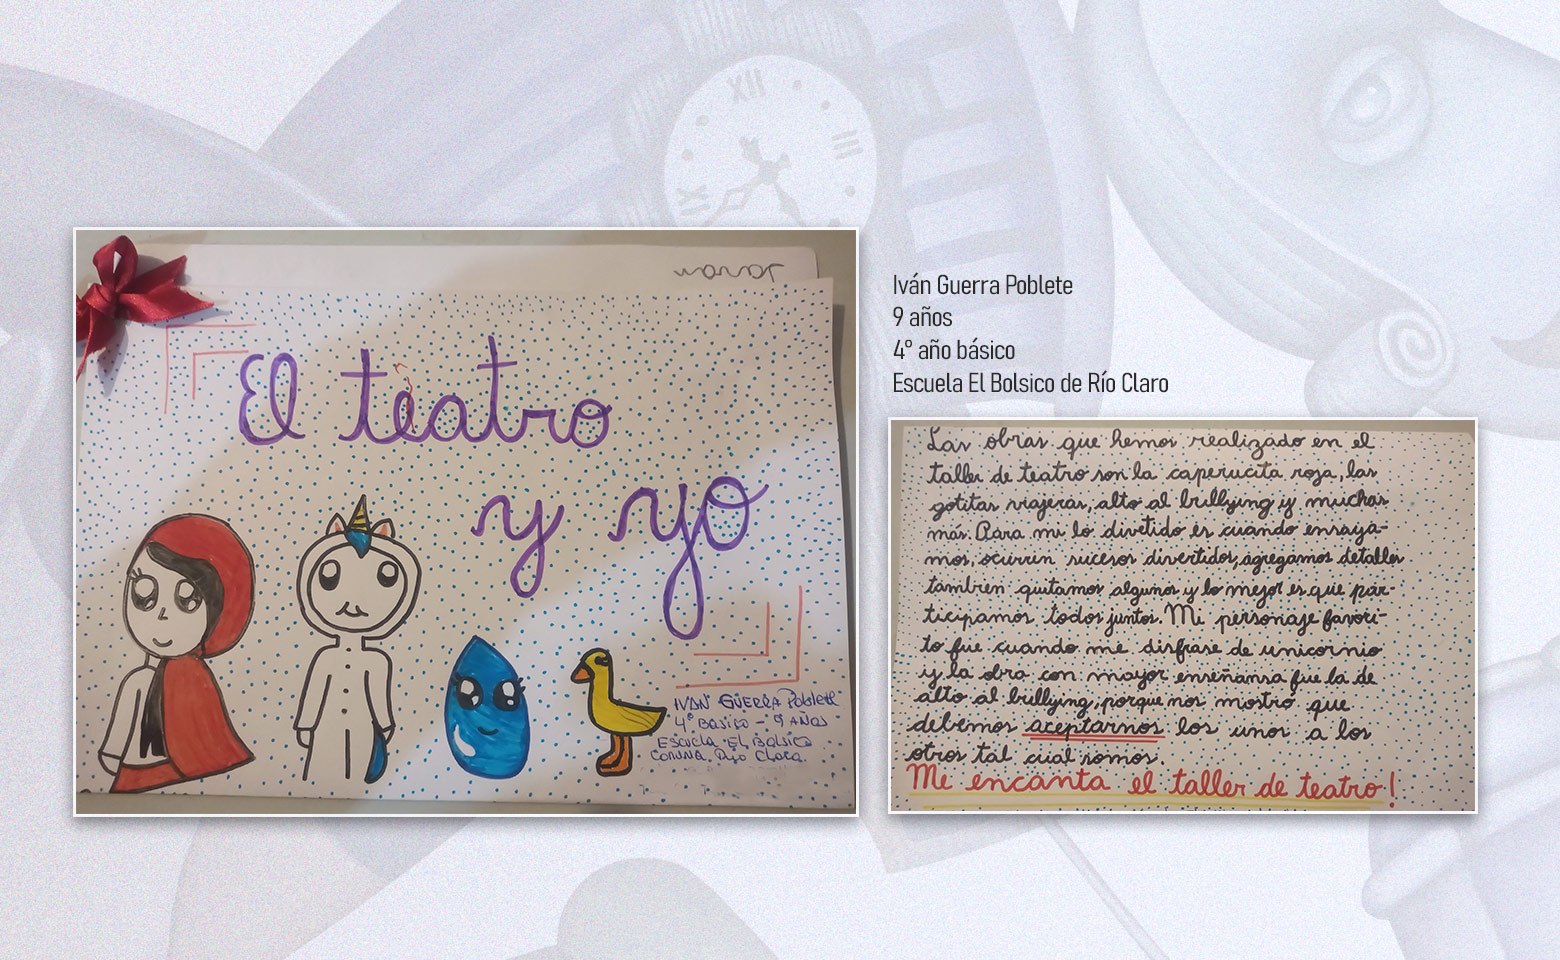 XII
III
IX
El teatro
y yo
IVÁN GUERRA Poblete
4º BÁSICO - 9 AÑOS
ESCUELA EL BOLSICO
Iván Guerra Poblete
9 años
4º año básico
Escuela El Bolsico de Río Claro
Las obras que hemos realizado en el
taller de teatro son la caperucita roja, las
gotitas viajeras, alto al bullying y muchas
más. Para mi lo divetido es cuando ensaya-
mos, ocurren sucesos divertidos, agregamos detalles
tambien quitamos algunos y lo mejor es que par-
ticipamos todos juntos. Mi personaje favori-
to fue cuando me disfrase de unicornio
y la obra con mayor enseñansa fue la de
alto al bullying, porque nos mostro que
debemos aceptarnos los unos a los
otros tal cual somos.
Me encanta el taller de teatro!